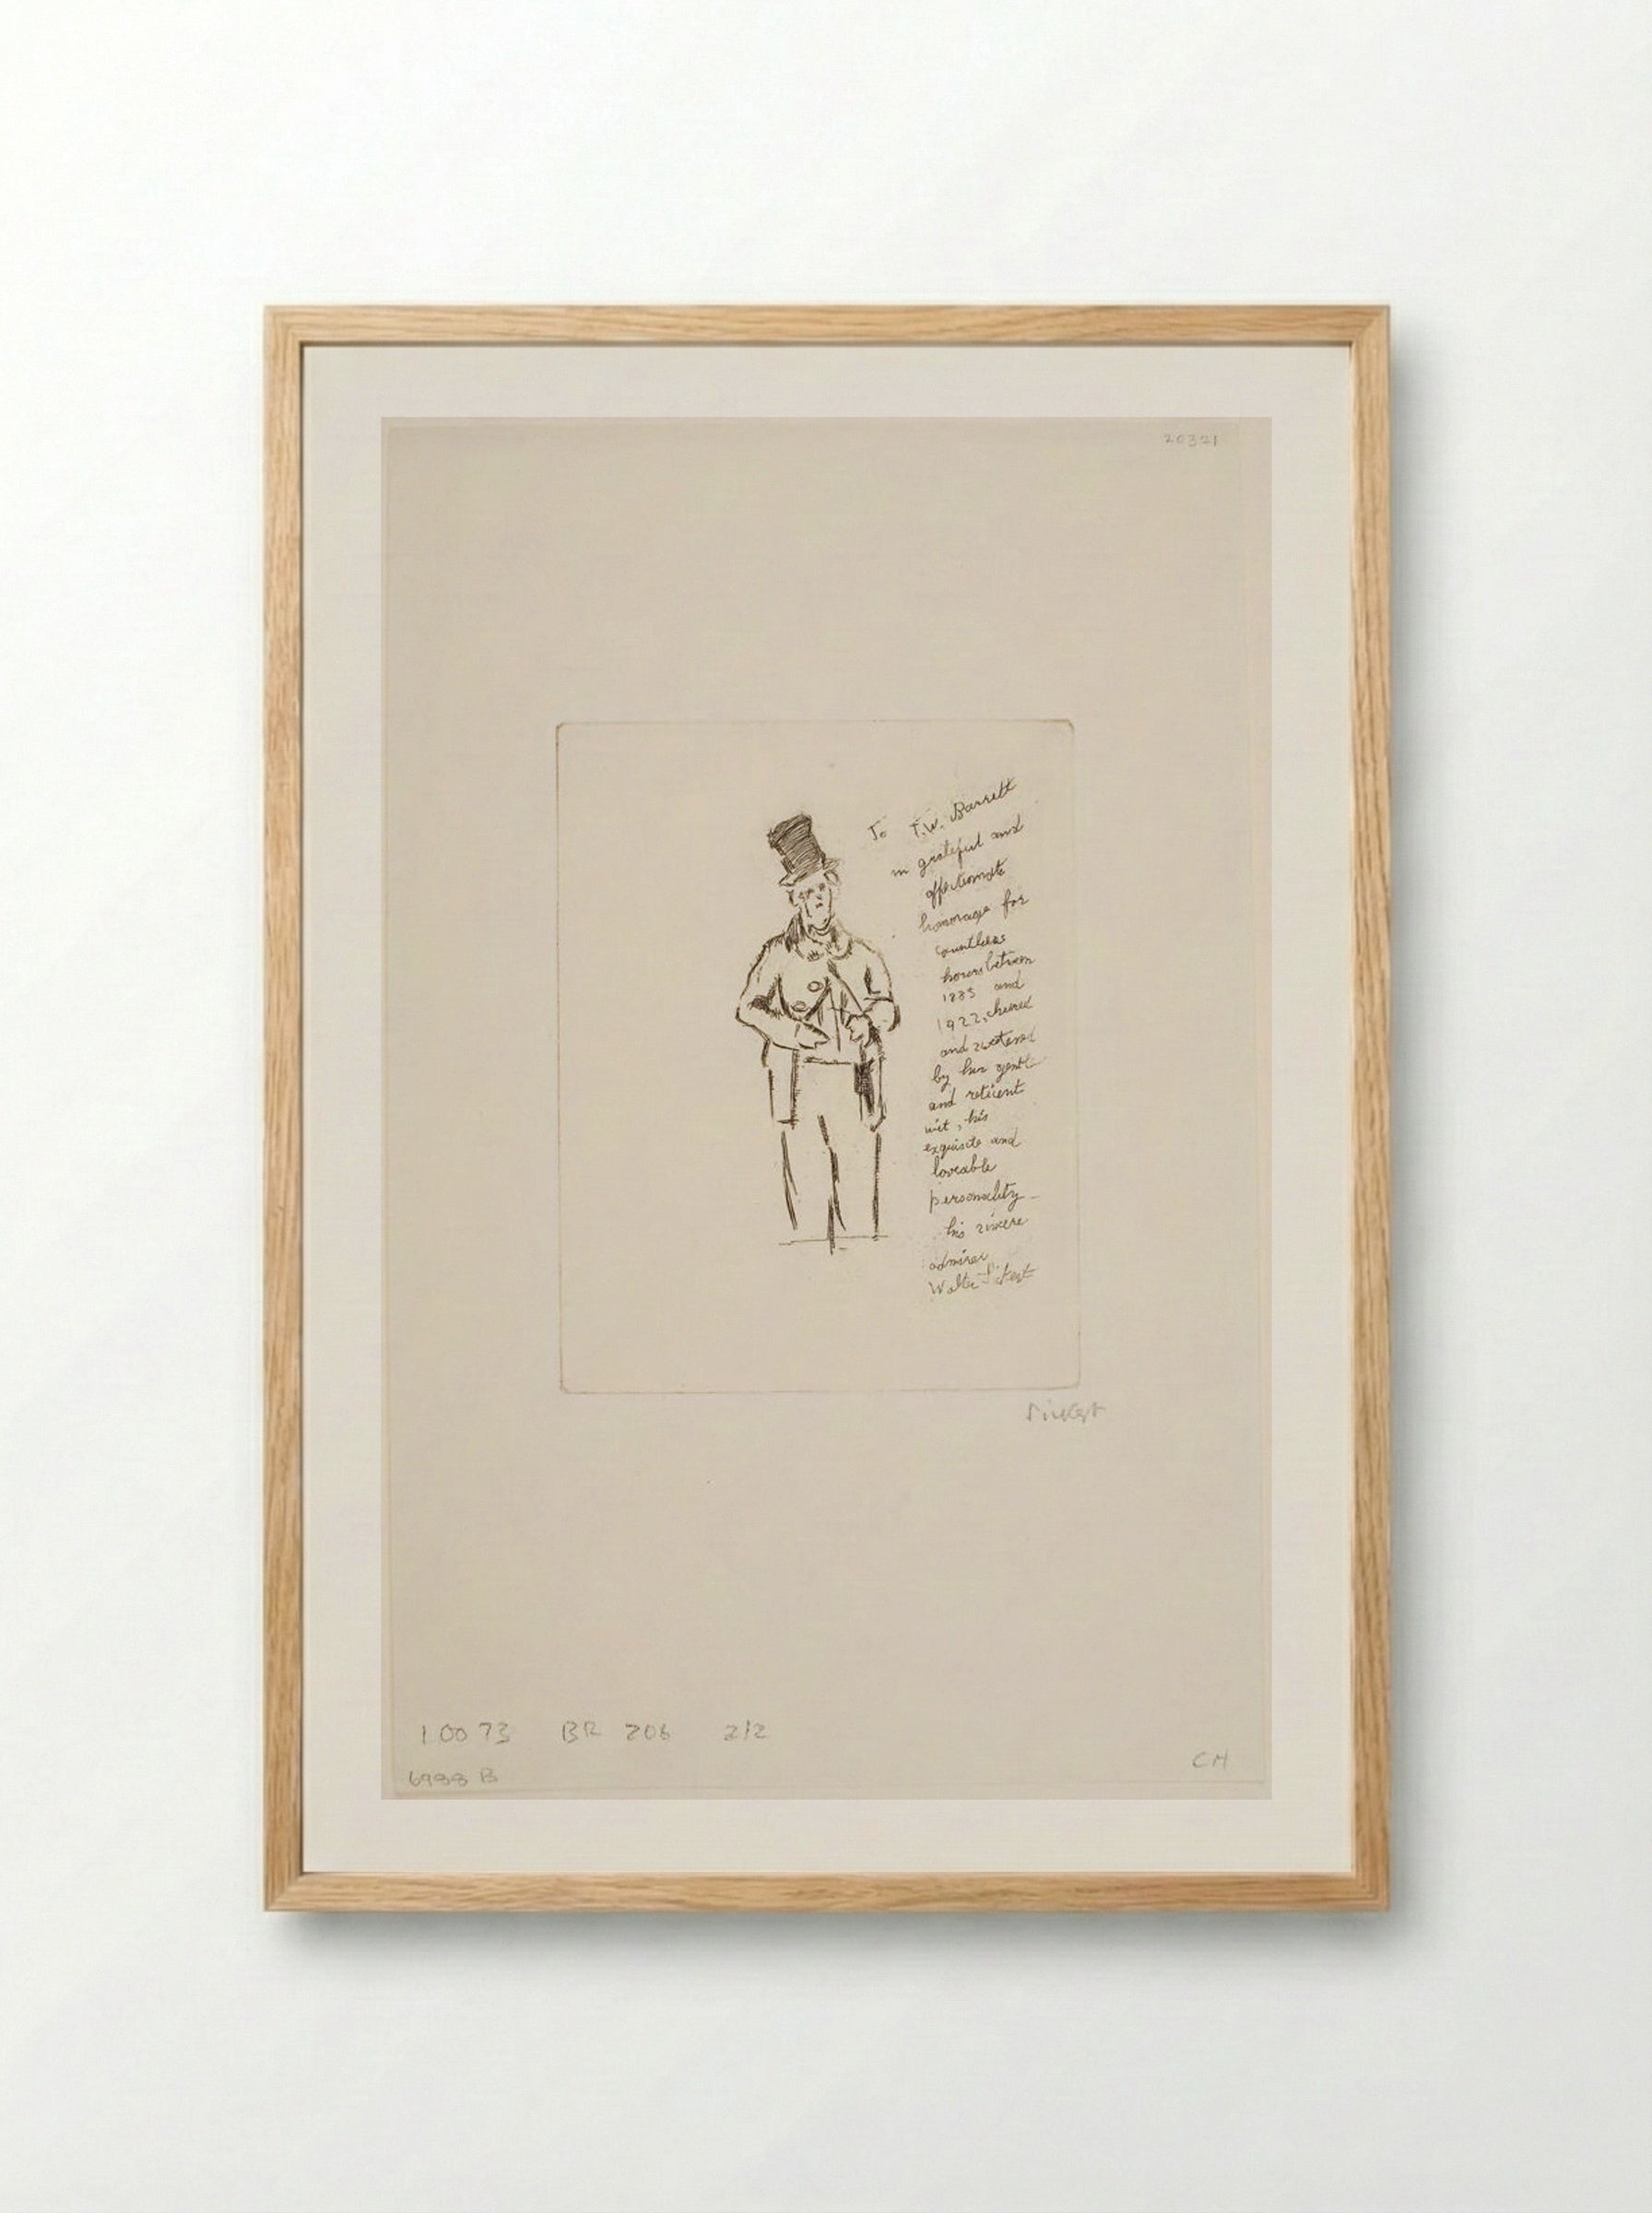 20321
To T.W. Barrett
in grateful and
affectionate
hommage for
countless
hours between
1885 and
1922, cheered
and sweetened
by his gentle
and reticent
wit, his
exquisite and
loveable
personality -
his sincere
admirer
Walter Sickert
Sickert
10073 BR 206 2/2
CH
6988 B